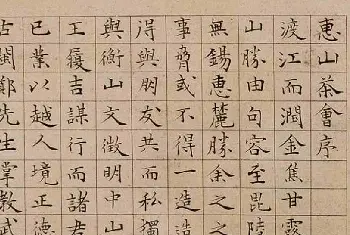 惠山茶會序
渡江而潤金焦甘露
山勝由句容至昆陵
無錫惠麓勝余之之
事脅或不得一造造
得與朋友共而私獨
與衡山文徵明中山
王履吉謀行而諸君
已業以越人境正德
古閩鄭先生掌教武